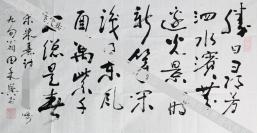 勝日尋芳
泗水濱無
邊光景一時
新等閒
識得東風
面萬紫千
紅總是春
宋朱熹詩
九旬翁田